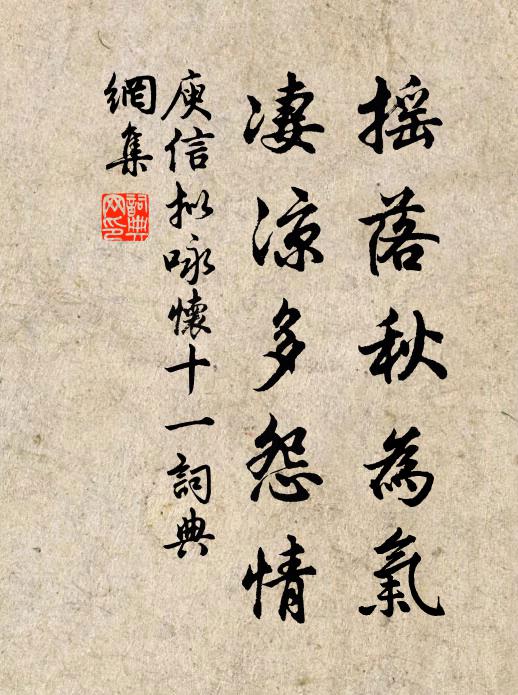 摇落秋為氣
凄涼多怨情
庾信拟咏懷十一詞典
網集
詞典
网印